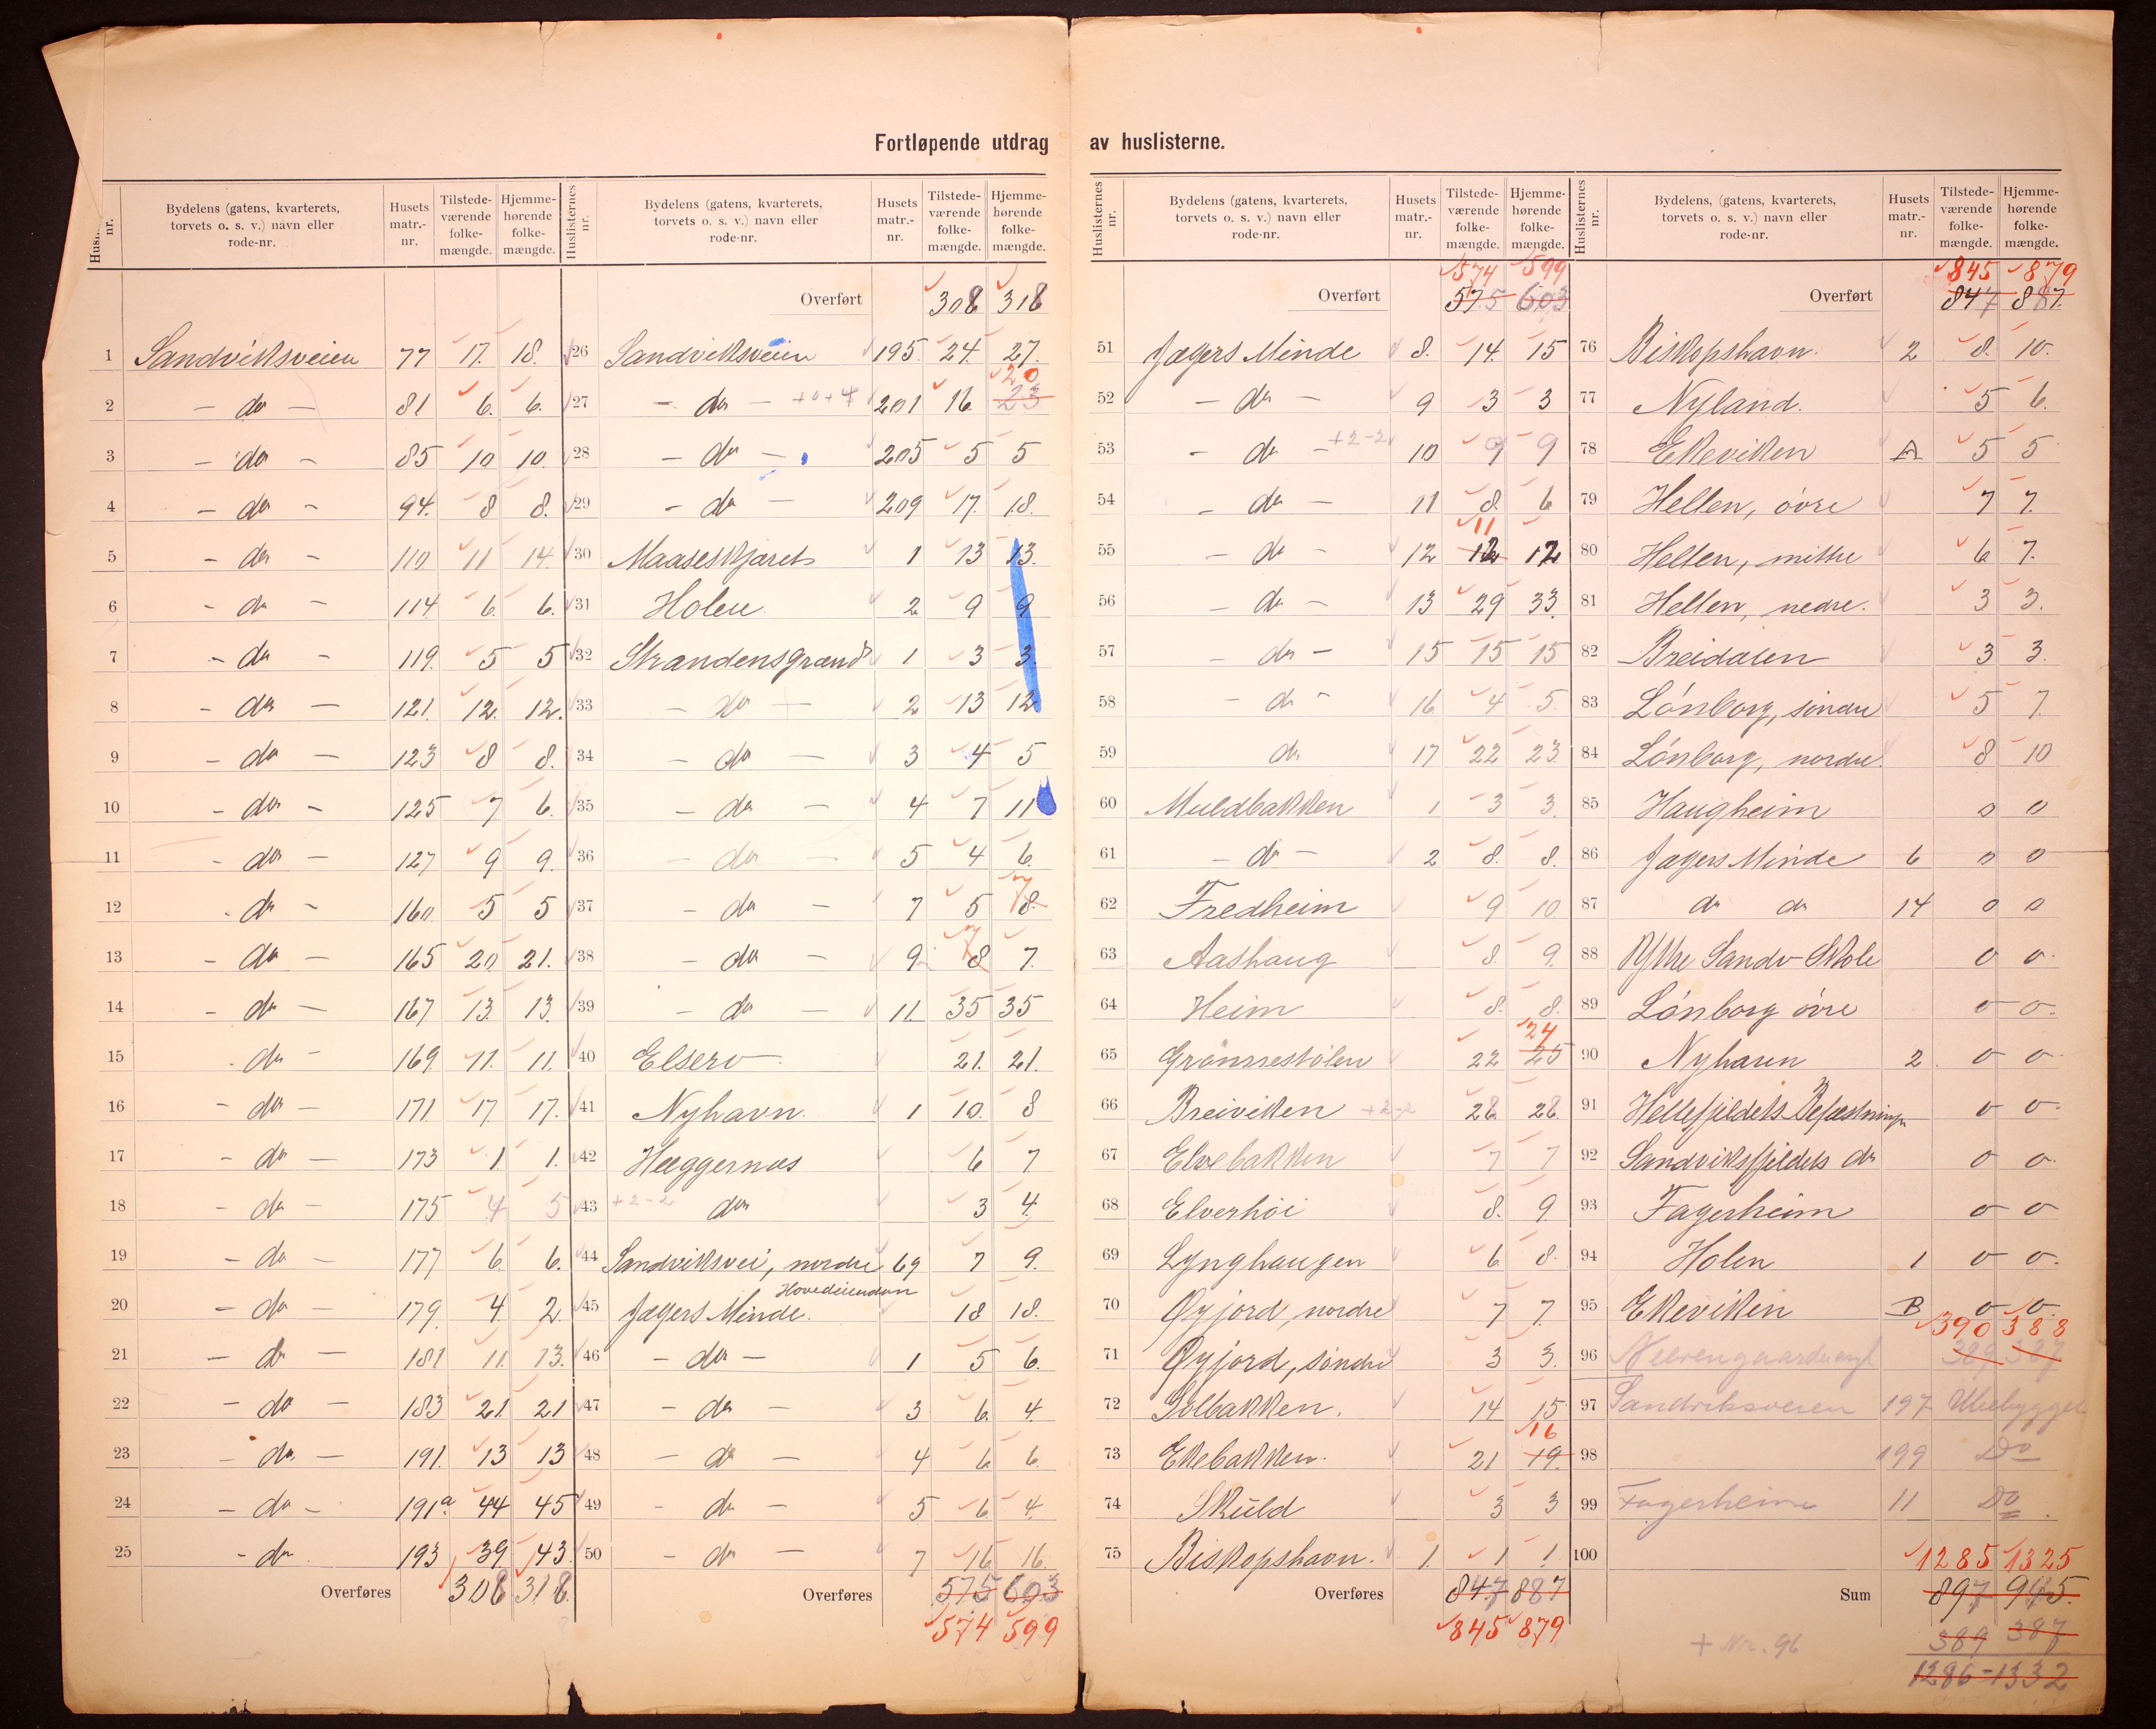 Fortløpende utdrag av huslisterne.
Huslisternes nr. | Bydelens (gatens, kvarterets, torvets o. s. v.) navn eller rode-nr. | Husets matr.-nr. | Tilstedeværende folkemængde. | Hjemmehørende folkemængde.
1 Sandviksveien 77 17. 18.
2 - do - 81 6. 6.
3 - do - 85 10 10.
4 - do - 94. 8 8.
5 - do - 110 11 14.
6 - do - 114. 6. 6.
7 - do - 119. 5 5
8 - do - 121. 12. 12.
9 - do - 123 8 8.
10 - do - 125 7 6.
11 - do - 127 9 9.
12 - do - 160. 5 5
13 - do - 165 20 21.
14 - do - 167 13. 13.
15 - do - 169. 11. 11.
16 - do - 171. 17 17.
17 - do - 173 1 1.
18 - do - 175 4 5
19 - do - 177 6. 6.
20 - do - 179. 4. 2.
21 - do - 181 11. 13.
22 - do - 183 21. 21
23 - do - 191. 13 13
24 - do - 191a. 44 45
25 - do - 193 39. 43.
Overføres 308 318.
Huslisternes nr. | Bydelens (gatens, kvarterets, torvets o. s. v.) navn eller rode-nr. | Husets matr.-nr. | Tilstedeværende folkemængde. | Hjemmehørende folkemængde.
Overført 308 318
26 Sandviksveien 195. 24. 27.
20
27 - do - +0+4 201 16. 23
28 - do - 205 5 5
29 - do - 209 17. 18.
30 Maaseskjæret 1 13 13.
31 Holen 2 9 9
32 Strandensgrænd 1 3 3.
33 - do - 2 13 12
34 - do - 3 4 5
35 - do - 4 7 11
36 - do - 5 4 6.
7
37 - do - 7 5 8.
7
38 - do - 9. 8 7.
39 - do - 11. 35 35
40 Elsero 21. 21.
41 Nyhavn. 1 10. 8
42 Hæggernæs 6 7
43 +2-2 do 3 4.
44 Sandviksvei, nordre 69 7 9.
Hovedeiendom
45 Jægers Minde. 18 18.
46 - do - 1 5 6.
47 - do - 3 6. 4.
48 - do - 4 6 6.
49 - do - 5 6 4.
50 - do - 7 16 16.
Overføres 575 603
574 599
Huslisternes nr. | Bydelens (gatens, kvarterets, torvets o. s. v.) navn eller rode-nr. | Husets matr.-nr. | Tilstedeværende folkemængde. | Hjemmehørende folkemængde.
574 599
Overført 575 603
51 Jægers Minde 8. 14. 15
52 - do - 9 3 3
53 - do - +2-2 10 9 9
54 - do - 11 8. 6
11
55 - do - 12 12 12
56 - do - 13 29 33.
57 - do - 15 15 15
58 - do - 16 4 5.
59 do 17 22 23.
60 Muldbakken 1 3 3.
61 - do - 2 8. 8.
62 Fredheim 9 10
63 Aashaug 8. 9.
64 Heim 8. 8.
24
65 Grønnestølen 22 25
66 Breiviken +2-2 28 28.
67 Elvebakken 7 7
68 Elverhøi 8. 9.
69 Lynghaugen 6 8.
70 Øyjord, nordre 7 7.
71 Øyjord, søndre 3 3.
72 Solbakken. 14 15
16
73 Ekebakken. 21 19.
74 Skuld 3 3
75 Biskopshavn. 1. 1 1.
Overføres 847 887
845 879
Huslisternes nr. | Bydelens (gatens, kvarterets, torvets o. s. v.) navn eller rode-nr. | Husets matr.-nr. | Tilstedeværende folkemængde. | Hjemmehørende folkemængde.
845 879
Overført 847 887
76 Biskopshavn. 2 8. 10.
77 Nyland. 5 6.
78 Ekeviken A 5 5
79 Hellen, øvre 7 7.
80 Hellen, mittre 6 7.
81 Hellen, nedre. 3 3.
82 Breidalen 3 3.
83 Lønborg, søndre 5 7.
84 Lønborg, nordre. 8 10
85 Haugheim 0 0
86 Jægers Minde 6 0 0
87 do do 14 0 0
88 Yttre Sandv-Skole 0 0.
89 Lønborg øvre 0 0.
90 Nyhavn 2. 0 0.
91 Hellefjeldets Befæstning 0 0.
92 Sandviksfjeldets do 0 0.
93 Fagerheim 0 0
94 Holen 1 0 0.
95 Ekeviken B 0 0.
390 388
96 389 387
97 Sandviksveien 197 Ubebygget
98 199 Do
99 Fagerheim 11 Do
100 1285 1325
Sum 897 945.
+ Nr. 96 389 387
1286-1332